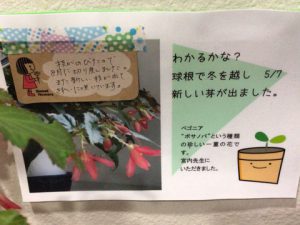 枝がのびたので
8月に切り戻しました。
また新しい枝が出て
きれいに咲いています。
わかるかな?
球根で冬を越し 5/7
新しい芽が出ました。
ベゴニア
"ボサノバ"という種類
の珍しい一重の花で
す。
宮内先生に
いただきました。